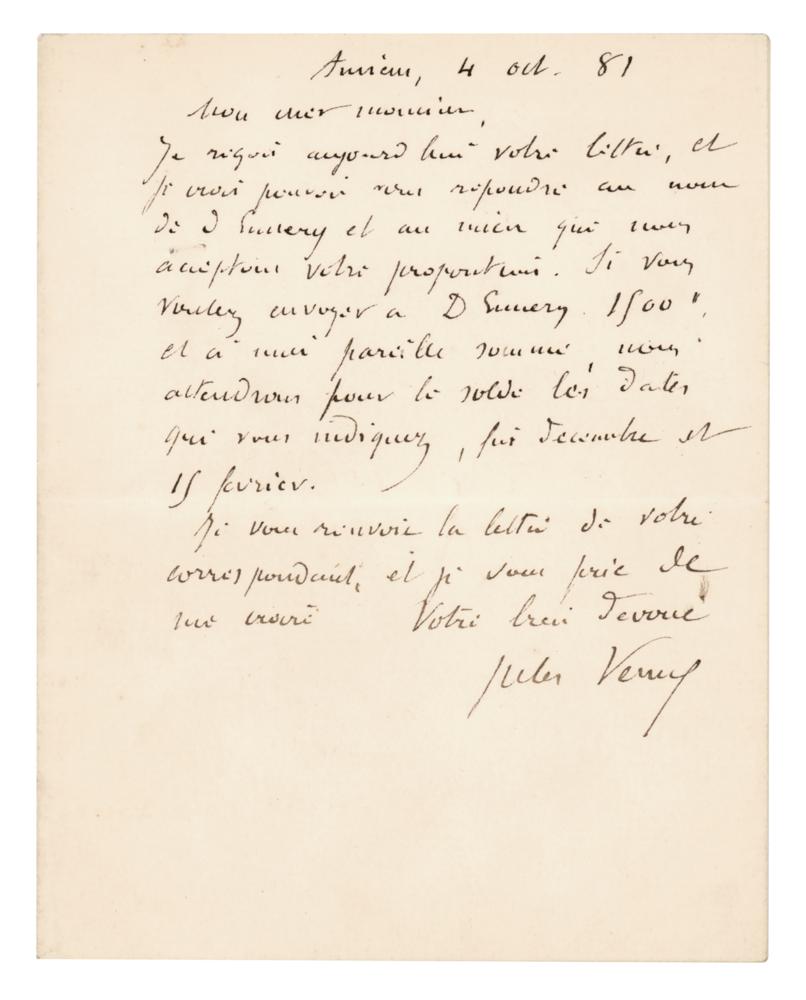 Amiens, 4 oct. 81
Mon cher monsieur,
Je reçois aujourd'hui votre lettre, et
je crois pouvoir vous répondre au nom
de d'Ennery et au mien que nous
acceptons votre proposition. Si vous
voulez envoyer à D'Ennery 1500 "
et à moi pareille somme, nous
attendrons pour le solde les dates
que vous indiquez, fin décembre et
15 février.
Je vous renvoie la lettre de votre
correspondant, et je vous prie de
me croire Votre bien dévoué
Jules Verne